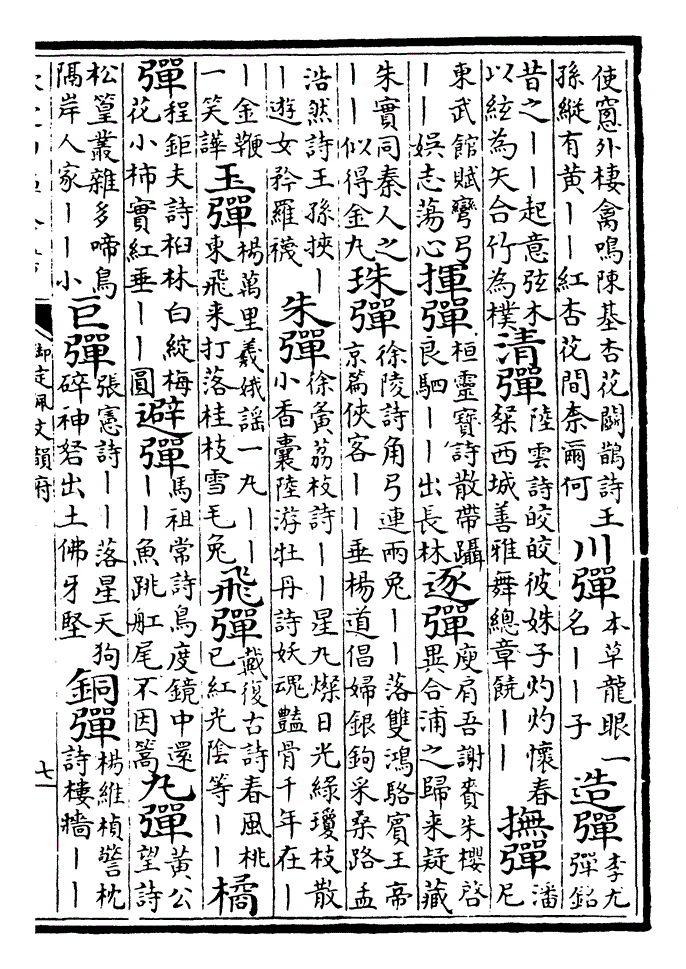 使窻外棲禽鳴陳基杏花鬭鵲詩王孫縱有黄丨丨紅杏花間柰爾何川彈本草龍眼一名丨丨子造彈李尤彈銘
昔之丨丨起意弦木以絃為矢合竹為樸清彈陸雲詩皎皎彼姝子灼灼懷春粲西城善雅舞總章饒丨丨撫彈潘尼
東武館賦彎弓丨丨娯志蕩心揮彈桓靈寶詩散帶躡良駟丨丨出長林逐彈庾肩吾謝賚朱櫻啓異合浦之歸来疑藏
朱實同秦人之丨丨似得金丸珠彈徐陵詩角弓連兩兔丨丨落雙鴻駱賓王帝京篇俠客丨丨垂楊道倡婦銀鉤采桑路孟
浩然詩王孫挾丨丨遊女矜羅襪朱彈徐夤荔枝詩丨丨星丸燦日光緑瓊枝散小香囊陸游牡丹詩妖魂豔骨千年在丨
丨金鞭一笑譁玉彈楊萬里羲娥謡一丸丨丨東飛来打落桂枝雪毛兔飛彈戴復古詩春風桃已紅光隂等丨丨橘
彈程鉅夫詩桕林白綻梅花小柿實紅垂丨丨圓避彈馬祖常詩鳥度鏡中還丨丨魚跳舡尾不因篙丸彈黄公望詩
松篁叢雜多啼鳥隔岸人家丨丨小巨彈張憲詩丨丨落星天狗碎神弩出土佛牙堅銅彈楊維楨警枕詩棲墻丨丨
御定佩文韻府
七